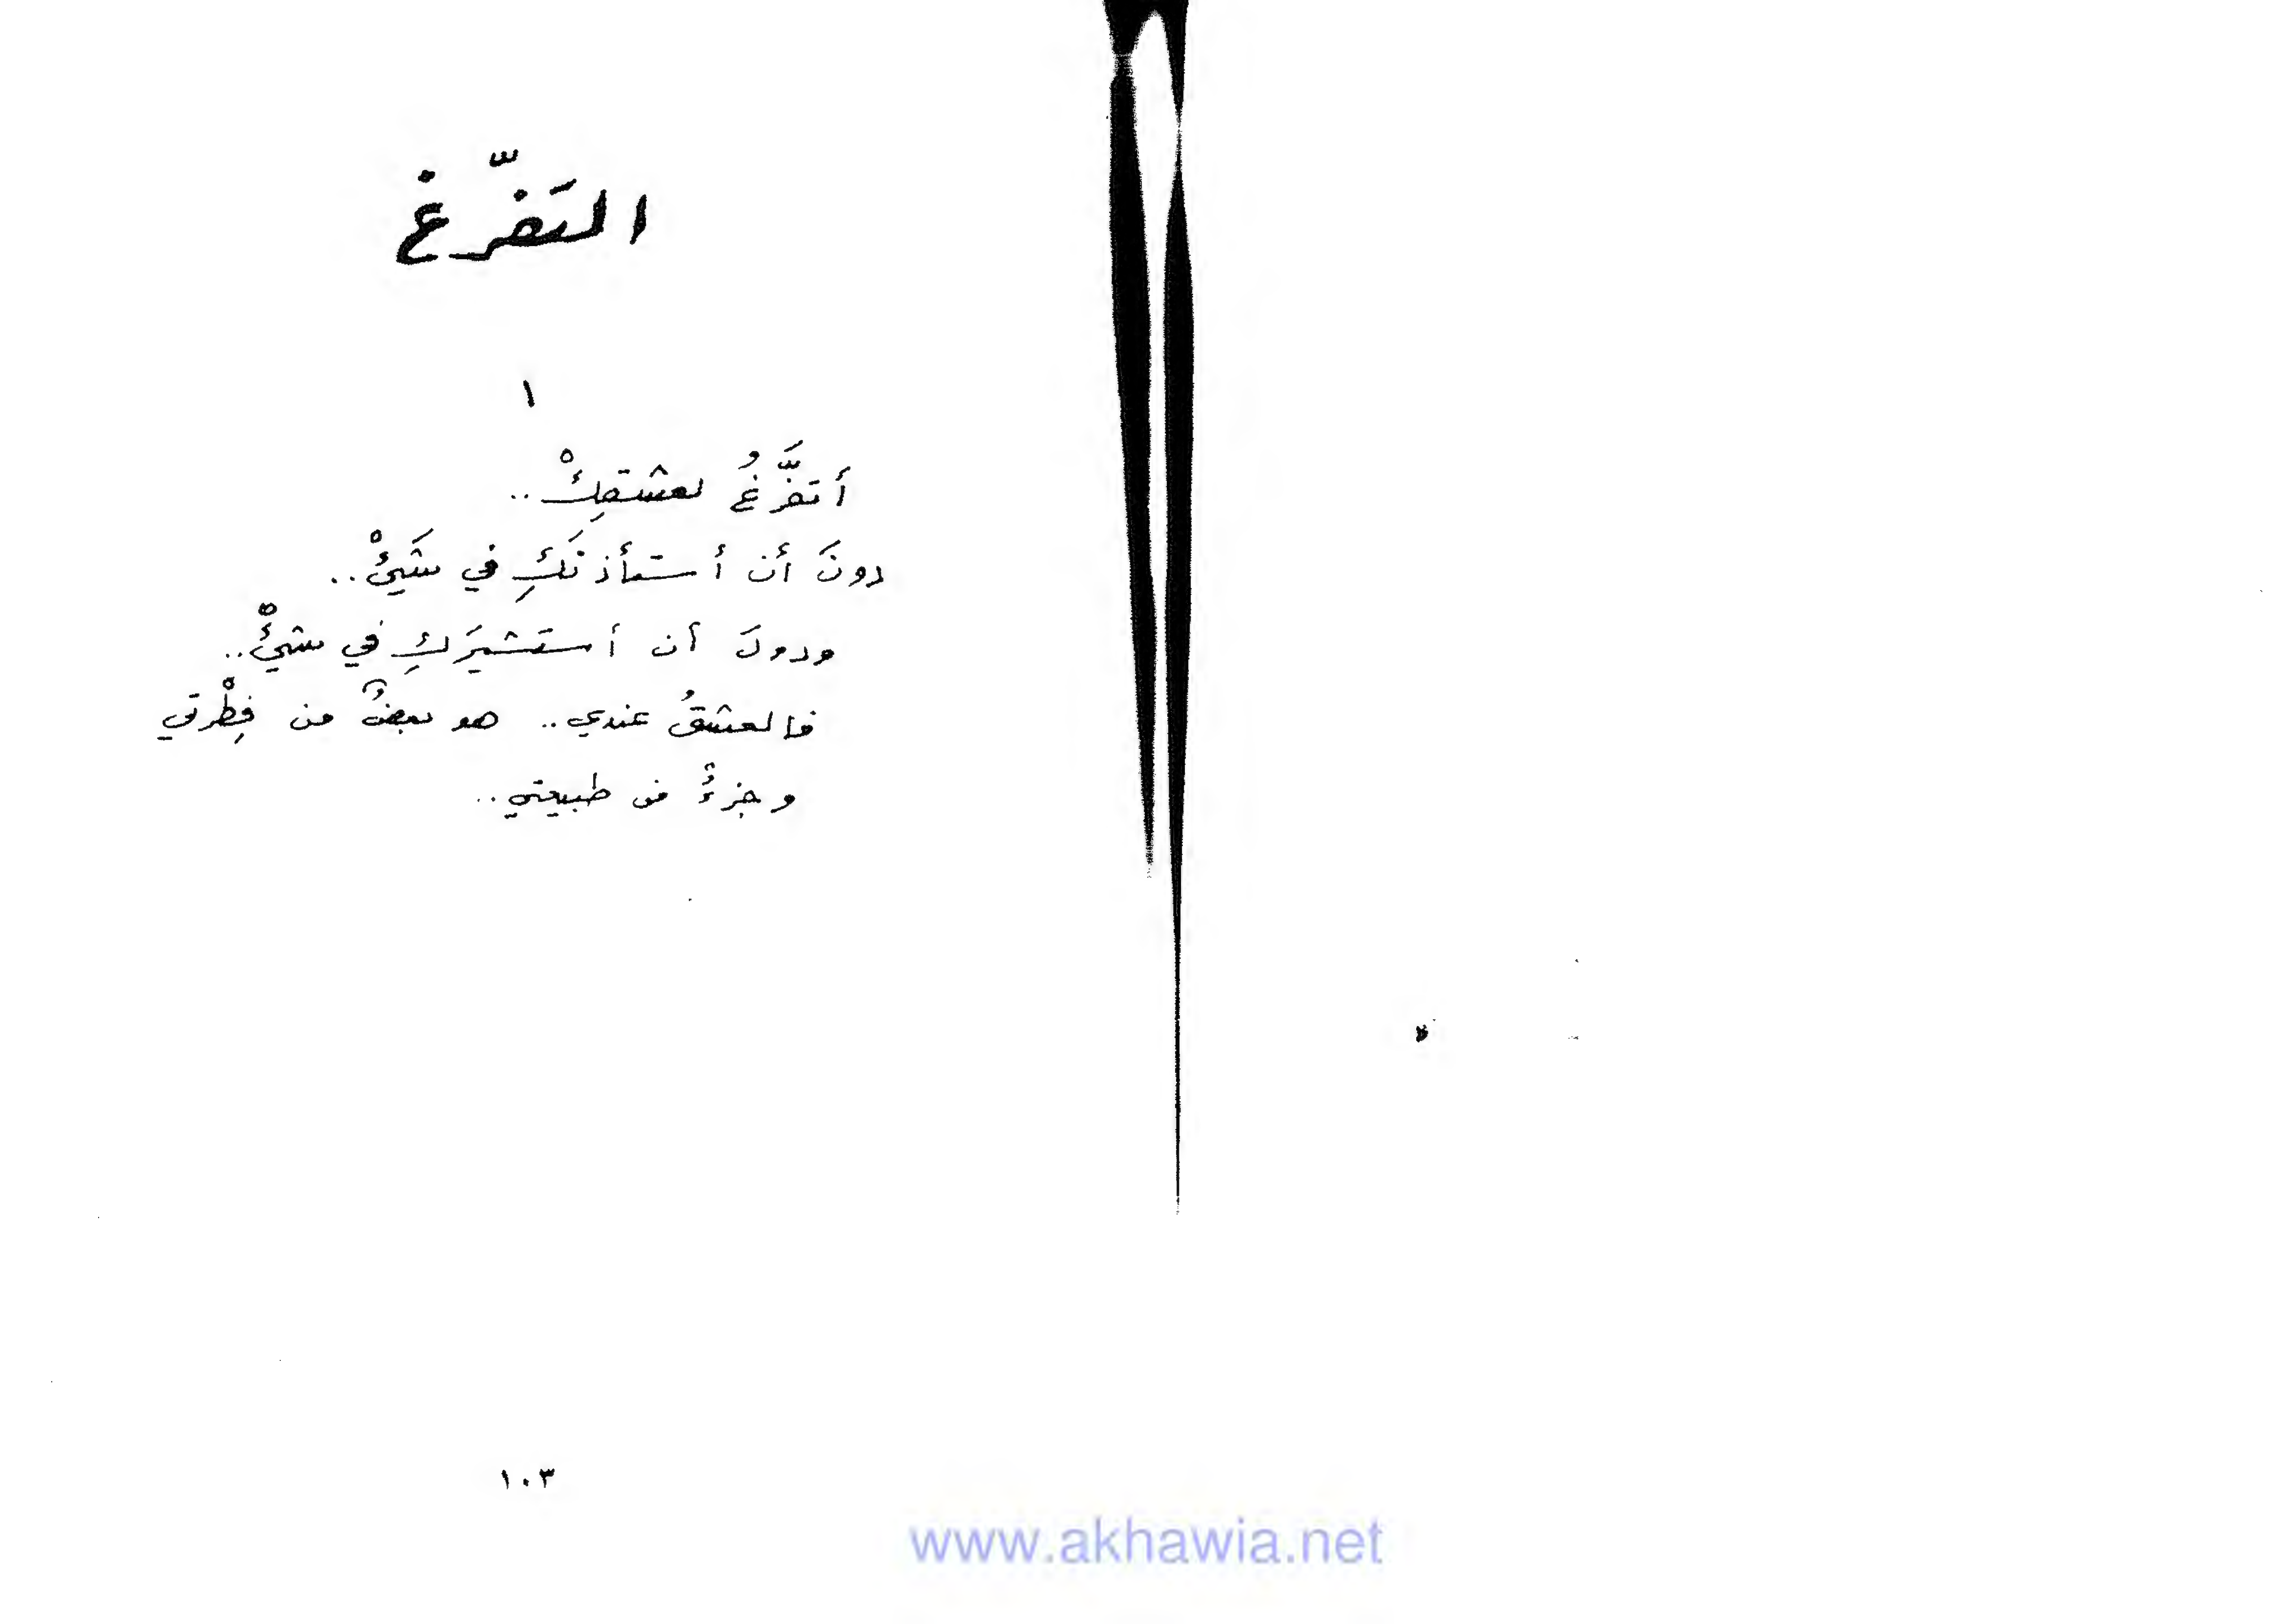 التفرّغ
١
أتفرَّغُ لعشقِكْ ..
دونَ أن أستأذنَكِ في شَيْءْ ..
ودونَ أن أستشيرَكِ في شيءْ ..
فالعشقُ عندي .. هو بعضٌ من فِطْرتي
وجزءٌ من طبيعتي ..
١٠٣
www.akhawia.net